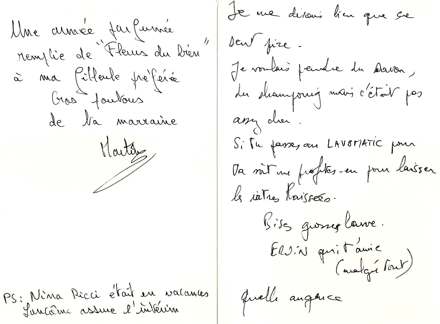 Une année parfumée
remplie de "Fleurs du bien"
à ma Filleule préférée
Gros poutous
de ta marraine
PS: Nina Ricci était en vacances
Lancôme assure l'intérim
Je me disais bien que ça
sent fire.
Je voulais prendre du savon,
du shampoing mais c'était pas
assez cher.
Si tu passes au LAVOMATIC pour
profites-en pour laisser
Bises grosse louve.
ERWIN qui t'aime
(malgré tout)
Quelle